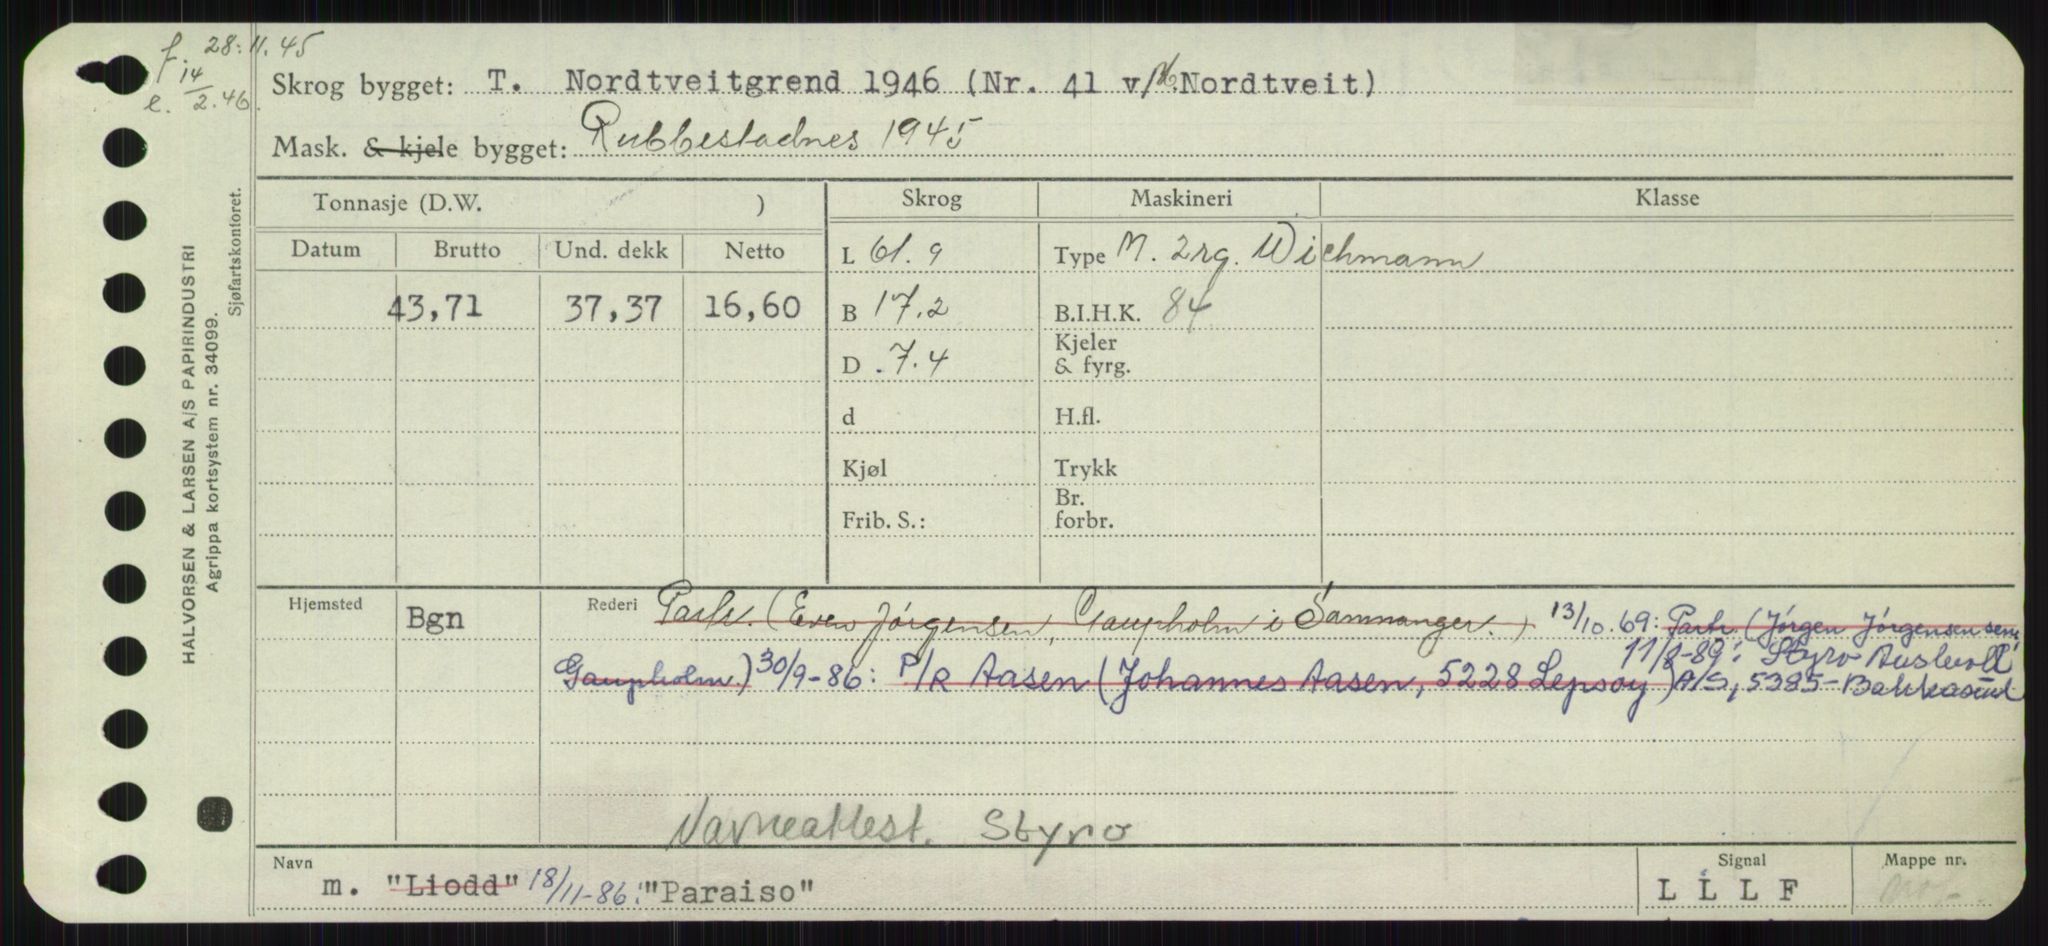 f. 28.11.45
e. 14/2.46.
Skrog bygget: T. Nordtveitgrend 1946 (Nr. 41 v/ Nordtveit)
Mask. & kjele bygget: Rubbestadnes 1945
HALVORSEN & LARSEN A/S PAPIRINDUSTRI
Agrippa kortsystem nr. 34099.
Sjøfartskontoret.
Tonnasje (D.W. ) Skrog Maskineri Klasse
Datum Brutto Und. dekk Netto
43,71 37,37 16,60
L 61.9
B 17.2
D 7.4
d
Kjøl
Frib. S.:
Type M. 2 rg. Wichmann
B.I.H.K. 84
Kjeler
& fyrg.
H.fl.
Trykk
Br.
forbr.
Hjemsted Bgn
Rederi Partr. (Even Jørgensen, Gaupholm i Samnanger.) 13/10.69: Partr. (Jørgen Jørgensen sen.
Gaupholm.) 30/9-86: P/R Aasen (Johannes Aasen, 5228 Lepsøy)
11/8-89: Styro Austevoll
A/S, 5385-Bakkasund
Navneattest. Styro
Navn m. "Liodd" 18/11-86: "Paraiso"
Signal
L L L F
Mappe nr.